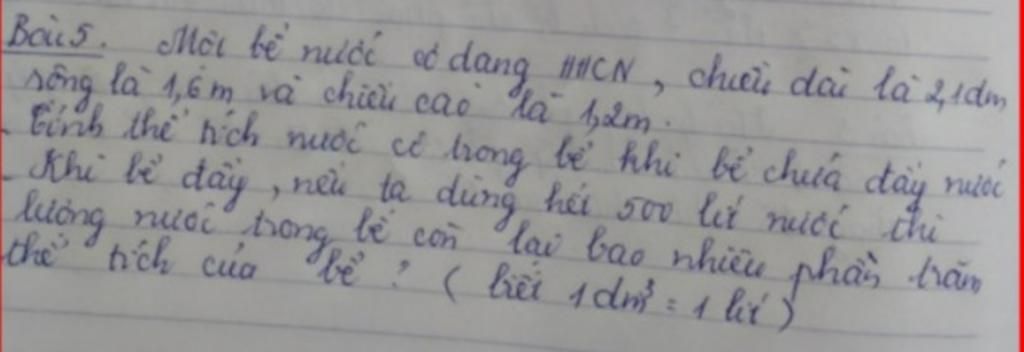 Bài 5. Một bể nước có dạng HHCN, chiều dài là 2,1dm,
rộng là 1,6m và chiều cao là 1,2m.
- Tính thể tích nước có trong bể khi bể chứa đầy nước
- Khi bể đầy, nếu ta dùng hết 500 lít nước thì
lượng nước trong bể còn lại bao nhiêu phần trăm
thể tích của bể? (biết 1dm³ = 1 lít)